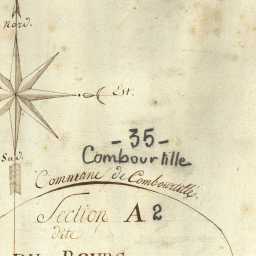 Nord.
Est.
- 35 -
Sud.
Combourtille
Commune de Combourtillé
Section A 2
dite
DU BOURG